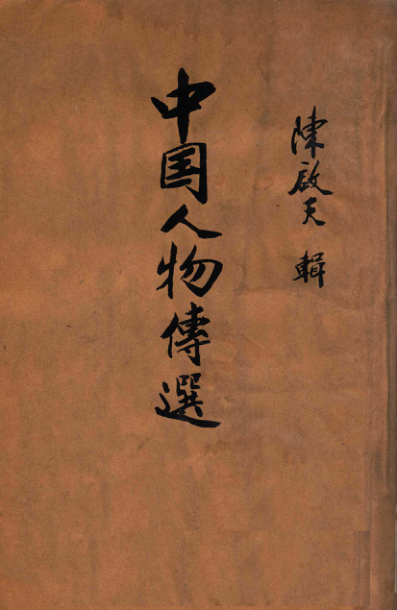 陳啟天 輯
中国人物傳選